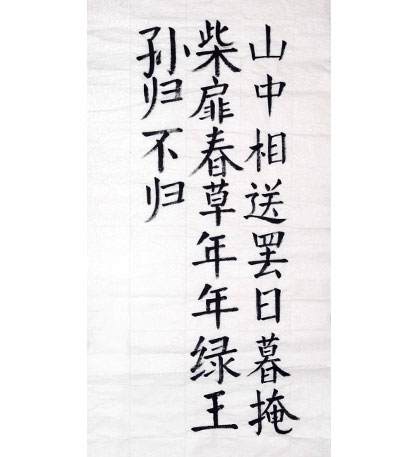 山中相送罢日暮掩
柴扉春草年年绿王
孙归不归